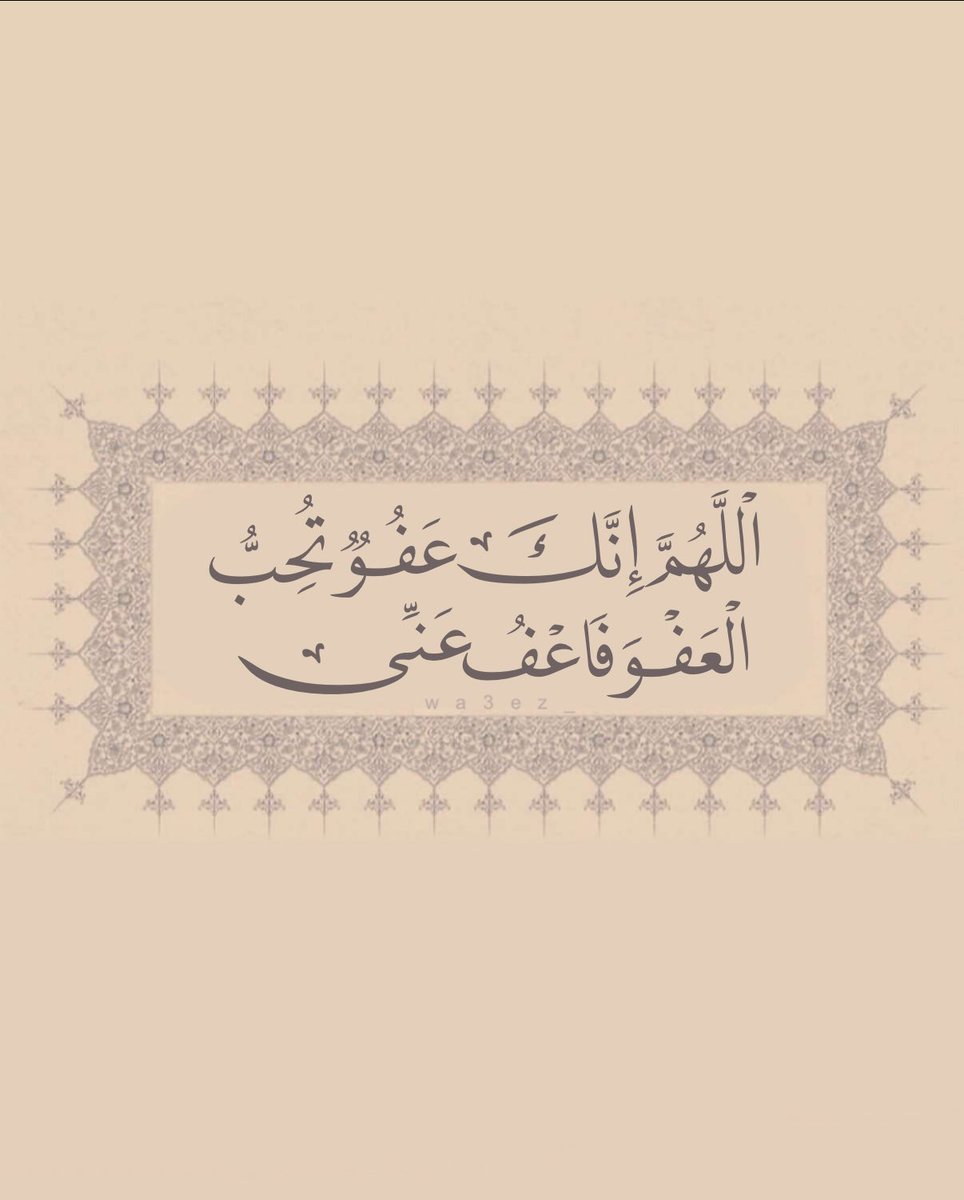 اَللَّهُمَّ إِنَّكَ عَفُوٌّ تُحِبُّ
الْعَفْوَ فَاعْفُ عَنِّى
wa3ez_